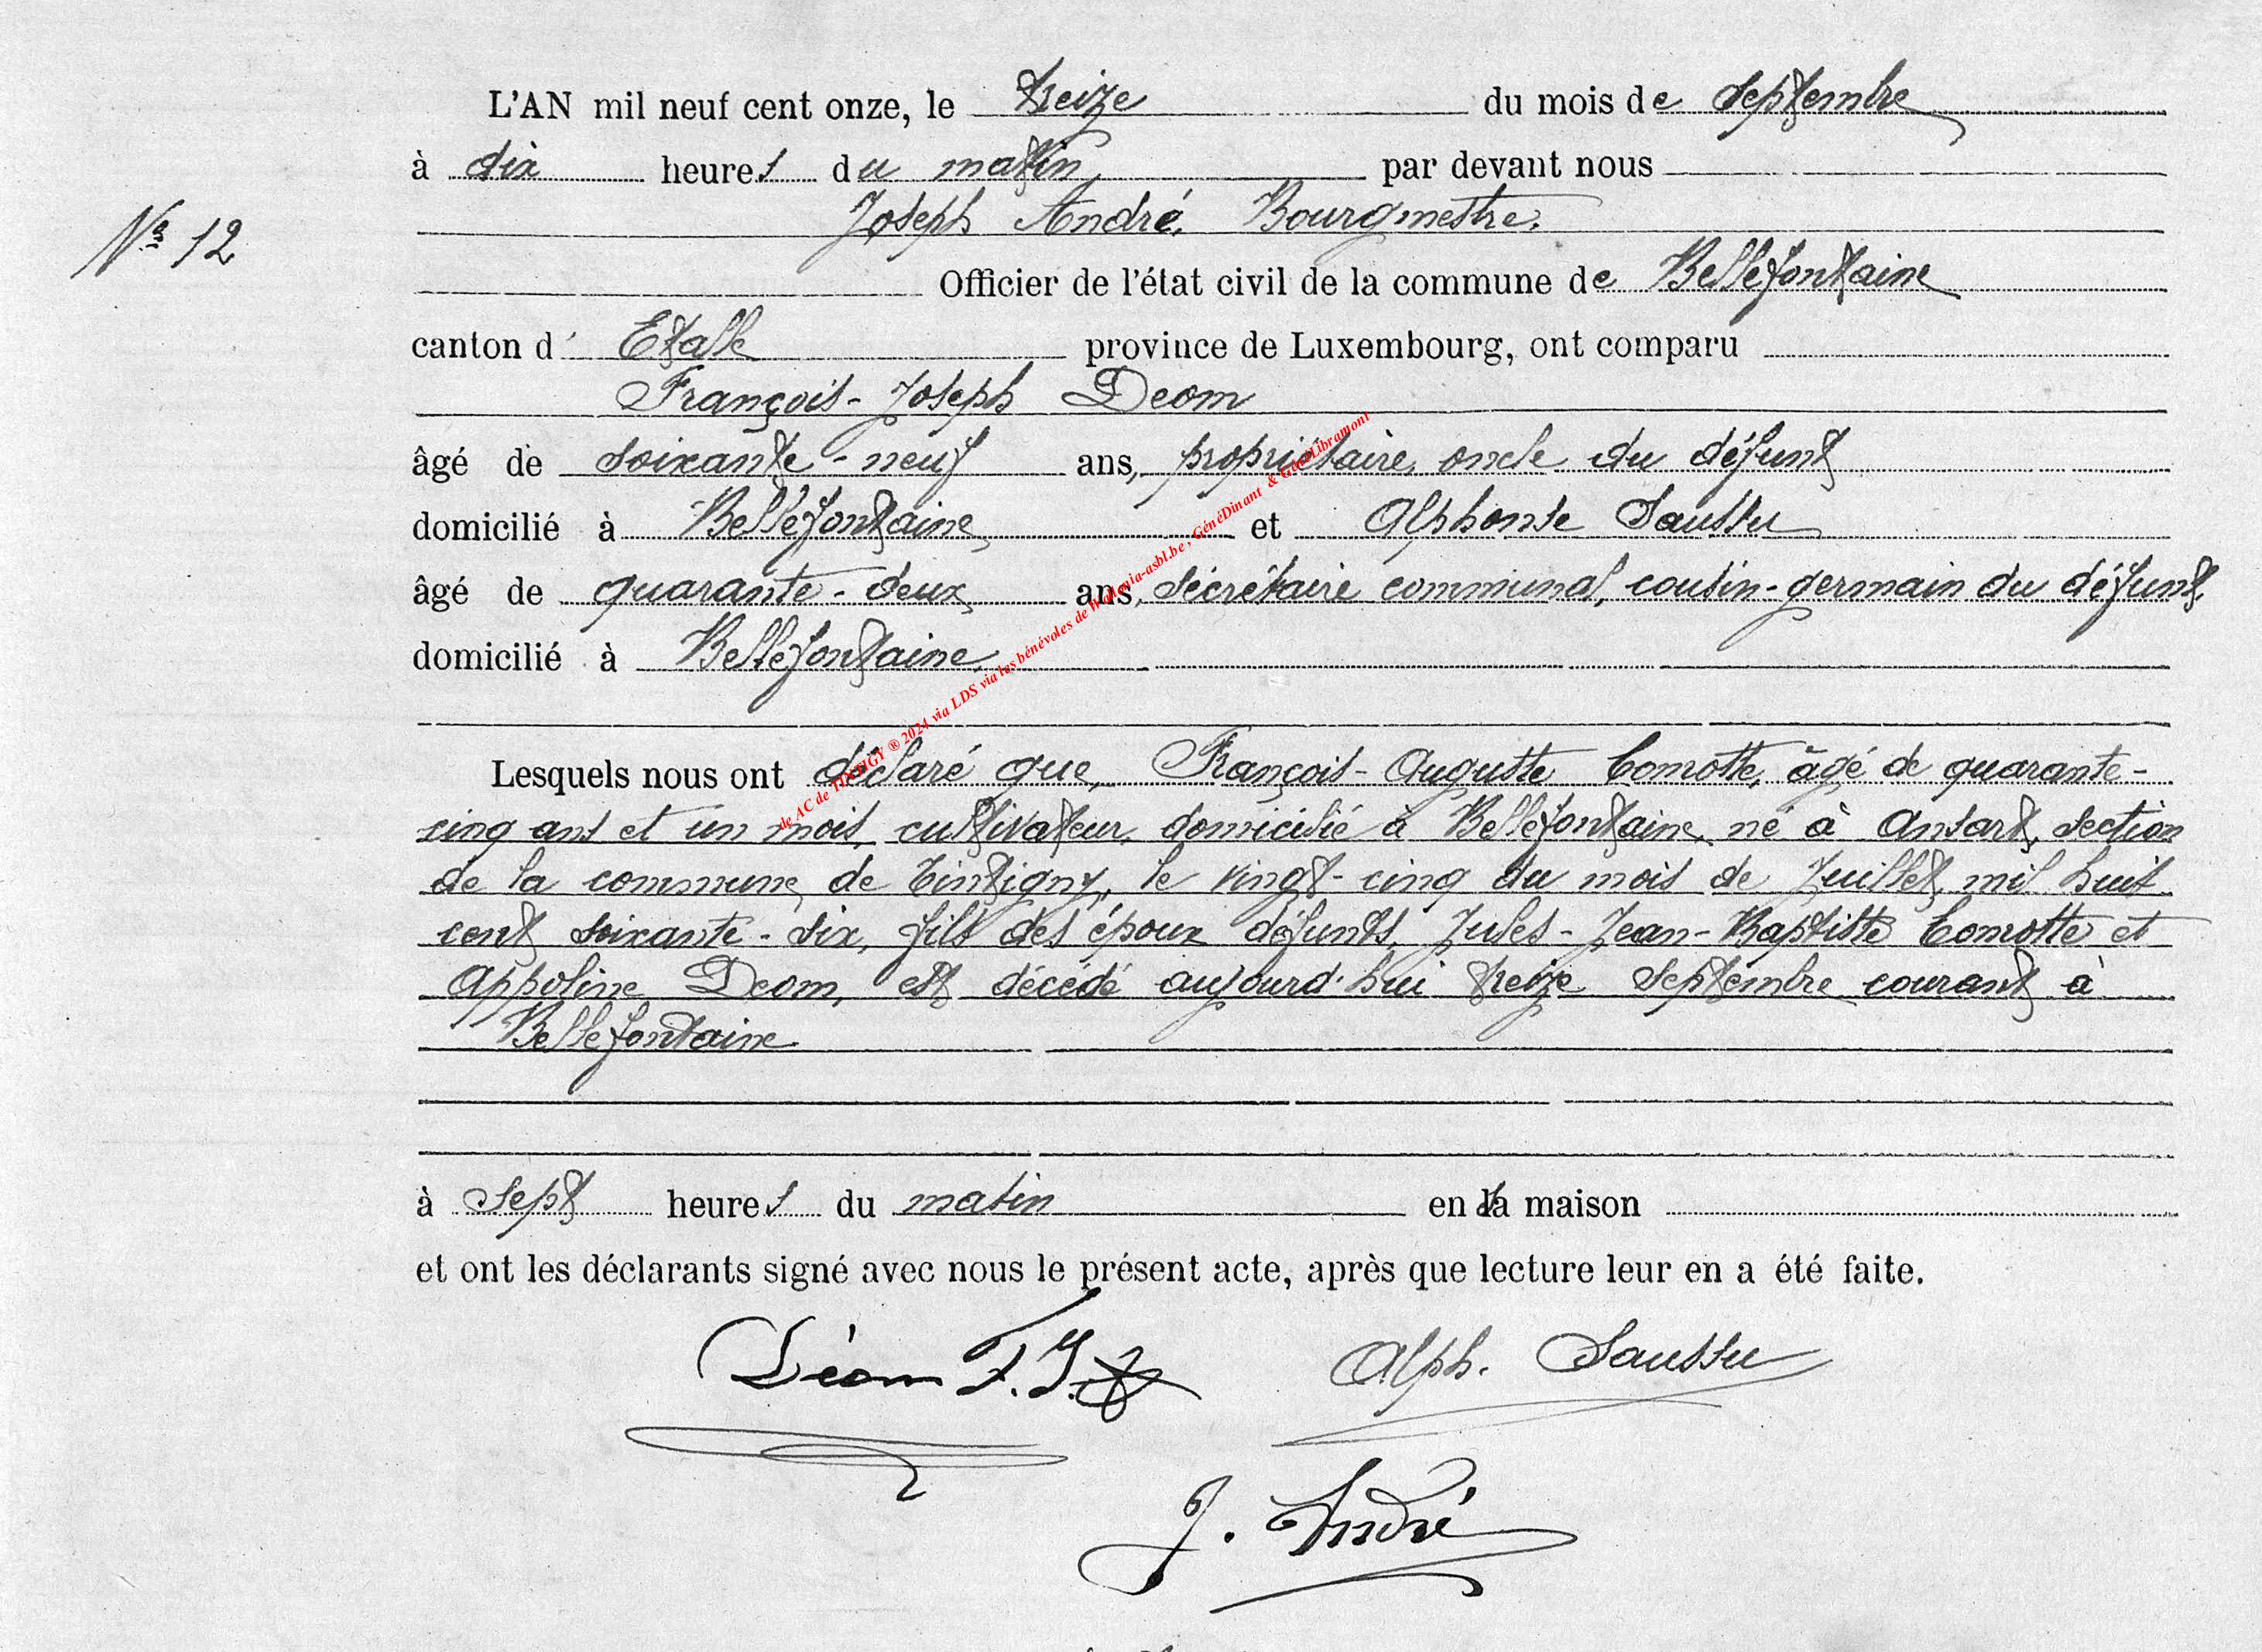 L'AN mil neuf cent onze, le treize du mois de Septembre
à dix heures du matin, par devant nous
Nº 12
Joseph André, Bourgmestre,
Officier de l'état civil de la commune de Bellefontaine
canton d' Etalle province de Luxembourg, ont comparu
François-Joseph Deom
âgé de soixante-neuf ans, propriétaire, oncle du défunt
domicilié à Bellefontaine, et Alphonse Saussu
âgé de quarante-deux ans, Sécrétaire communal, cousin-germain du défunt,
domicilié à Bellefontaine,
Lesquels nous ont déclaré que, François-Auguste Comotte, âgé de quarante-
cinq ans et un mois, cultivateur, domicilié à Bellefontaine, né à Ansart, section
de la commune de Tintigny, le vingt-cinq du mois de Juillet, mil huit
cent soixante-six, fils des époux défunts, Jules-Jean-Baptiste Comotte et
Appoline Deom, est décédé aujourd'hui treize Septembre courant à
Bellefontaine
à Sept heures du matin en sa maison
et ont les déclarants signé avec nous le présent acte, après que lecture leur en a été faite.
Déom F.J. Alph. Saussu
J. André
de AC de TINTIGY ® 2024 via LDS via les bénévoles de Wallonia-asbl.be , GénéDinant & GénéLibramont